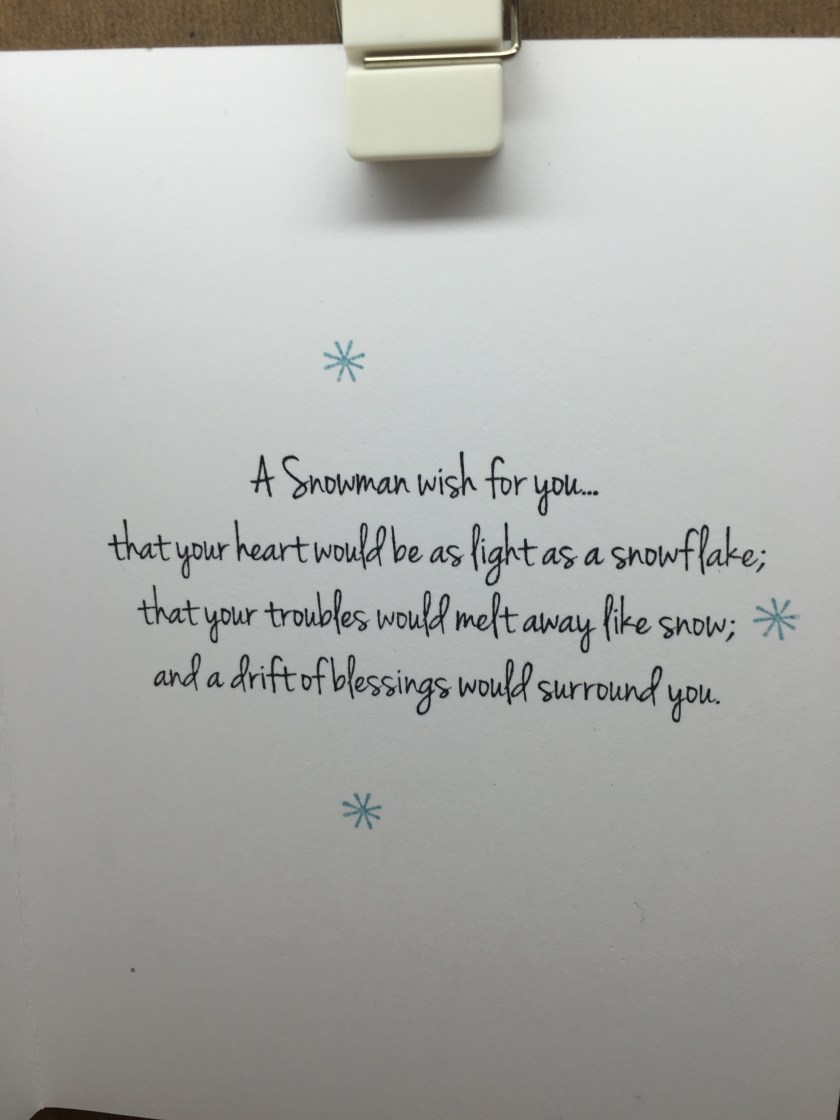 A Snowman wish for you...
that your heart would be as light as a snowflake;
that your troubles would melt away like snow;
and a drift of blessings would surround you.